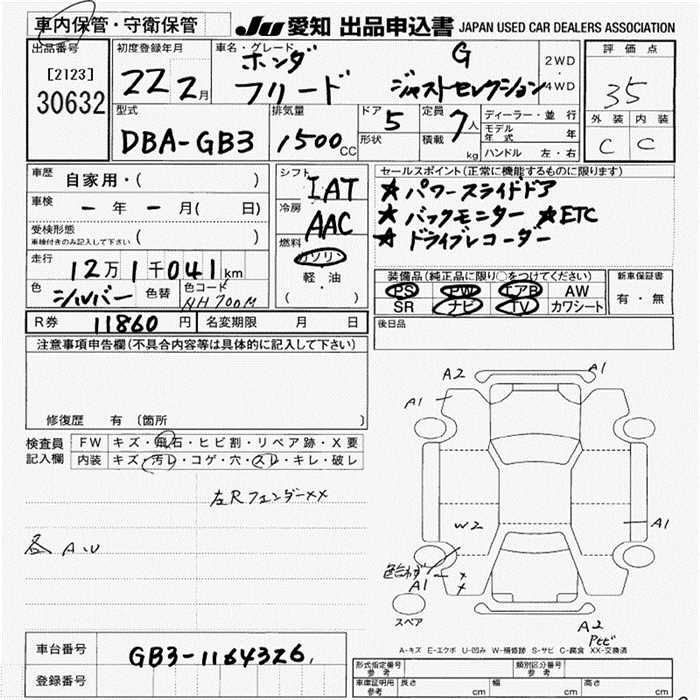 車内保管・守衛保管
JU 愛知 出品申込書 JAPAN USED CAR DEALERS ASSOCIATION
出品番号
[2123]
30632
初度登録年月
22 2月
車名・グレード
ホンダ G
フリード ジャストセレクション
2WD
・
4WD
評価点
35
外装 内装
C C
型式
DBA-GB3
排気量
1500 CC
ドア
5
形状
定員
7人
積載
kg
ディーラー・並行
モデル年式 年
ハンドル 左・右
車歴
自家用・( )
車検
ー 年 ー 月( 日)
受検形態
車検付きのみ記入して下さい ( )
走行
12万1千041km
色
シルバー
色替
色コード
NH700M
シフト
IAT
冷房
AAC
燃料
ガソリン
軽・油
( )
セールスポイント(正常に機能するものに限ります)
★パワースライドドア
★バックモニター ★ETC
★ドライブレコーダー
装備品(純正品に限り○をつけてください)
PS PW エアB AW
SR ナビ TV カワシート
新車保証書
有・無
R券 11860円 名変期限 月 日
後日品
注意事項申告欄(不具合内容等は具体的に記入して下さい)
修復歴 有 〔箇所 〕
検査員
記入欄
FW キズ・飛石・ヒビ割・リペア跡・X要
内装 キズ・汚レ・コゲ・穴・スレ・キレ・破レ
左Rフェンダーxx
各 A.U
A2 A1
A1
W2
A1
A1
スペア
A2
A-キズ E-エクボ U-凹み W-補修跡 S-サビ C-腐食 XX-交換済
車台番号
GB3-1164326
登録番号
形式指定番号
参考
類別区分番号
参考
車庫証明用
参考
長さ cm 幅 cm 高さ cm